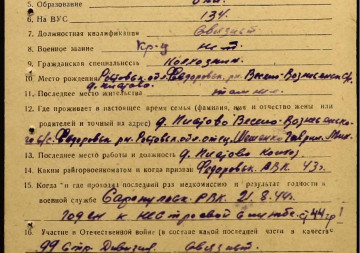 5. Образование
6. На ВУС 134.
7. Должностная квалификация Связист
8. Военное звание Кр-ц
9. Гражданская специальность Колхозник
10. Место рождения Ростовск. обл. Федоровск. рн. Весело-Вознесенск
11. Последнее место жительства
12. Где проживает в настоящее время семья (фамилия, имя и отчество жены или
родителей и точный их адрес) д. Весело-Вознесенско-
го с/с. Федоровск. рн. Ростовск. обл. отец
13. Последнее место работы и должность д.
14. Каким райгорвоенкоматом и когда призван Федоровск. РВК. 43 г.
15. Когда и где проходил последний раз медкомиссию и результат годности к
военной службе РВК 2/8.44 г.
годен к нестроевой службе
16. Участие в Отечественной войне (в составе какой последней части и в качестве
99 Стр. Дивизия. Связист.